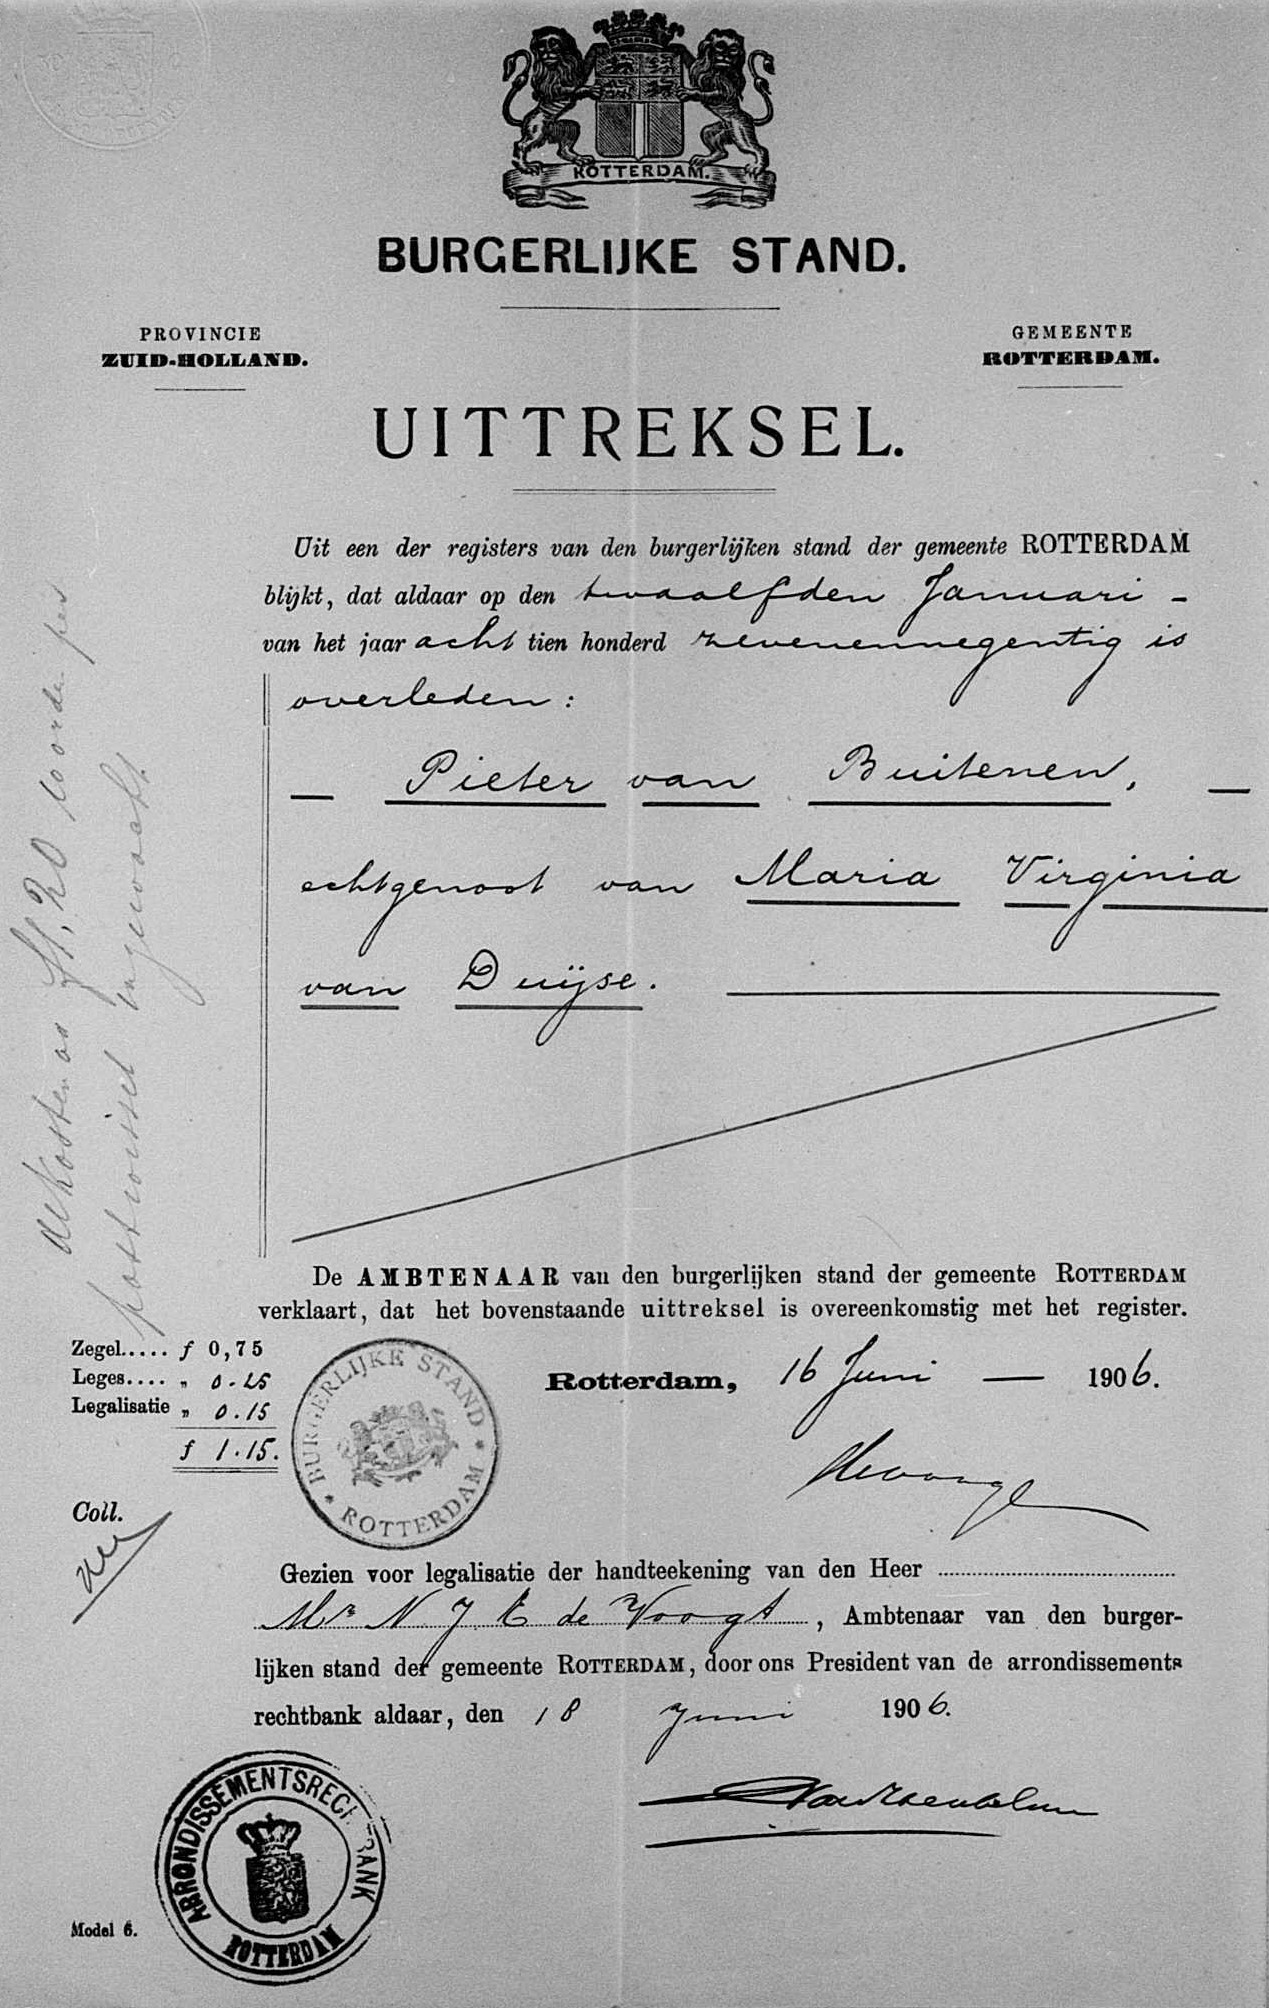 ROTTERDAM.
BURGERLIJKE STAND.
PROVINCIE
ZUID-HOLLAND.
GEMEENTE
ROTTERDAM.
UITTREKSEL.
Uit een der registers van den burgerlijken stand der gemeente ROTTERDAM
blijkt, dat aldaar op den twaalfden Januari -
van het jaar acht tien honderd zevenennegentig is
overleden:
— Pieter van Buitenen, —
echtgenoot van Maria Virginia
van Duijse.
De AMBTENAAR van den burgerlijken stand der gemeente ROTTERDAM
verklaart, dat het bovenstaande uittreksel is overeenkomstig met het register.
Zegel..... f 0,75
Leges.... „ 0.25
Legalisatie „ 0.15
f 1.15.
BURGERLIJKE STAND
* ROTTERDAM *
Rotterdam, 16 Juni — 1906.
Coll.
Gezien voor legalisatie der handteekening van den Heer
Mr N J E de Voogt, Ambtenaar van den burger-
lijken stand der gemeente ROTTERDAM, door ons President van de arrondissements
rechtbank aldaar, den 18 Juni 1906.
ARRONDISSEMENTSRECHTBANK
ROTTERDAM
Model 6.
de kosten ad f1,20 worden per
postwissel ingewacht